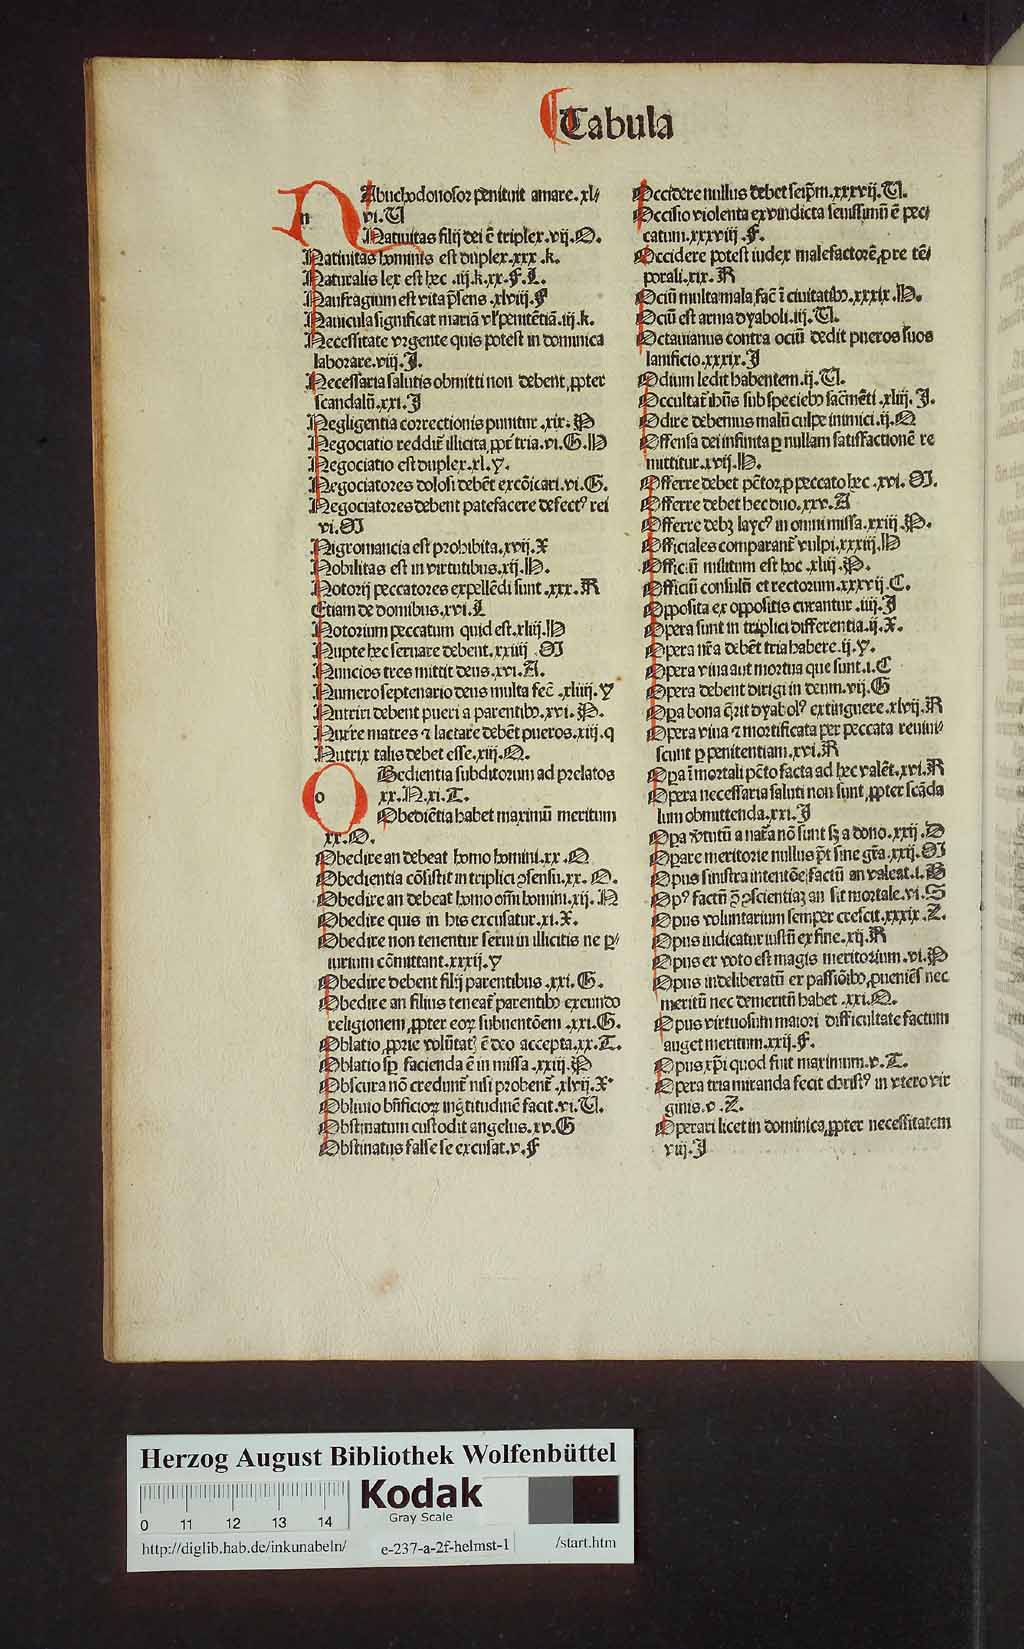 Tabula
NAbuchodonosor penituit amare.xl/
vi.U
Natiuitas filij dei ē triplex.vij.O.
Natiuitas hominis est duplex.xxx.k.
Naturalis lex est hec.iij.k.xx.F.L.
Naufragium est vita p̄sens.xlviij.F
Nauicula significat mariā vl' penitētiā.iij.k.
Necessitate vrgente quis potest in dominica
laborare.viij.J.
Necessaria salutis obmitti non debent,ꝓpter
scandalū.xxi.J
Negligentia correctionis punitur.xix.P
Negociatio reddit̄ illicita,ꝓpt̄ tria.vi.G.H
Negociatio est duplex.xl.Y.
Negociatores dolosi debēt excōicari.vi.G.
Negociatores debent patefacere defectꝰ rei
vi.M
Nigromancia est prohibita.xvij.X
Nobilitas est in virtutibus.xij.H.
Notorij peccatores expellēdi sunt.xxx.R
Etiam de domibus.xvi.L
Notorium peccatum quid est.xliij.H
Nupte hec seruare debent.xxiiij.M
Nuncios tres mittit deus.xvi.A.
Numero septenario deus multa fec̄.xliiij.Y
Nutriri debent pueri a parentibꝰ.xvi.P.
Nut're matres ⁊ lactare debēt pueros.xiij.q
Nutrix talis debet esse.xiij.O.
OBedientia subditorum ad prelatos
xx.N.xi.T.
Obediētia habet maximū meritum
xx.O.
Obedire an debeat homo homini.xx.O
Obedientia cōsistit in triplici ↄsensu.xx.O.
Obedire an debeat homo om̄i homini.xij.N
Obedire quis in his excusatur.xi.X.
Obedire non tenentur serui in illicitis ne ꝑ/
iurium cōmittant.xxxij.Y
Obedire debent filij parentibus.xxi.G.
Obedire an filius teneat̄ parentibꝰ exeundo
religionem,ꝓpter eoꝝ subuentōem.xxi.G.
Oblatio,ꝓprie volūtat; ē deo accepta.xx.T.
Oblatio sꝑ facienda ē in missa.xxiij.P
Obscura nō credunt̄ nisi probent̄.xlvij.X
Obliuio bn̄ficioꝝ ingᷓtitudinē facit.vi.U.
Obstinatum custodit angelus.xv.G
Obstinatus false se excusat.v.F
Occidere nullus debet seip̄m.xxxvij.U.
Occisio violenta ex vindicta seuissimū ē pec/
catum.xxxviij.F.
Occidere potest iudex malefactorē,ꝓ re tē/
porali.xix.R
Ociū multa mala fac̄ ī ciuitatibꝰ.xxxix.H.
Ociū est arma dyaboli.iij.U.
Octauianus contra ociū dedit pueros suos
lanificio.xxxix.J
Odium ledit habentem.ij.U.
Occultat̄ ihūs sub speciebꝰ sac̄mēti.xliij.J.
Odire debemus malū culpe inimici.ij.Q
Offensa dei infinita ꝑ nullam satisfactionē re
mittitur.xvij.H.
Offerre debet pc̄tor,ꝓ peccato hec.xvi.M.
Offerre debet hec duo.xxv.A
Offerre debꝫ laycꝰ in omni missa.xxiij.P.
Officiales comparant̄ vulpi.xxxiij.H
Officiū militum est hoc.xliij.P.
Officiū consulū et rectorum.xxxvij.C.
Opposita ex oppositis curantur.iiij.J
Opera sunt in triplici differentia.ij.X.
Opera nr̄a debēt tria habere.ij.Y.
Opera viua aut mortua que sunt.i.C
Opera debent dirigi in deum.vij.G
Oꝑa bona q̄rit dyabolꝰ extinguere.xlvij.R
Opera viua ⁊ mortificata per peccata reuiui/
scunt ꝑ penitentiam.xvi.R
Oꝑa ī mortali pc̄to facta ad hec valēt.xvi.R
Opera necessaria saluti non sunt,ꝓpter scāda
lum obmittenda.xxi.J
Oꝑa v̄tutū a nat̄a nō sunt sꝫ a dono.xxij.D
Oꝑare meritorie nullus pōt sine gr̄a.xxij.M
Opus sinistra intentōe factū an valeat.i.B
Opꝰ factū ꝯ ↄscientiaꝫ an sit mortale.vi.S
Opus voluntarium semper crescit.xxxix.Z.
Opus iudicatur iustū ex fine.xij.R
Opus ex voto est magis meritorium.vi.P
Opus indeliberatū ex passiōibꝰ,ꝓueniēs nec
meritū nec demeritū habet.xxi.Q.
Opus virtuosum maiori difficultate factum
auget meritum.xxij.F.
Opus xp̄i quod fuit maximum.v.T.
Opera tria miranda fecit christꝰ in vtero vir
ginis.v.Z.
Operari licet in dominica,ꝓpter necessitatem
viij.J
Herzog August Bibliothek Wolfenbüttel
Kodak
Gray Scale
0 11 12 13 14
http://diglib.hab.de/inkunabeln/ e-237-a-2f-helmst-1 /start.htm